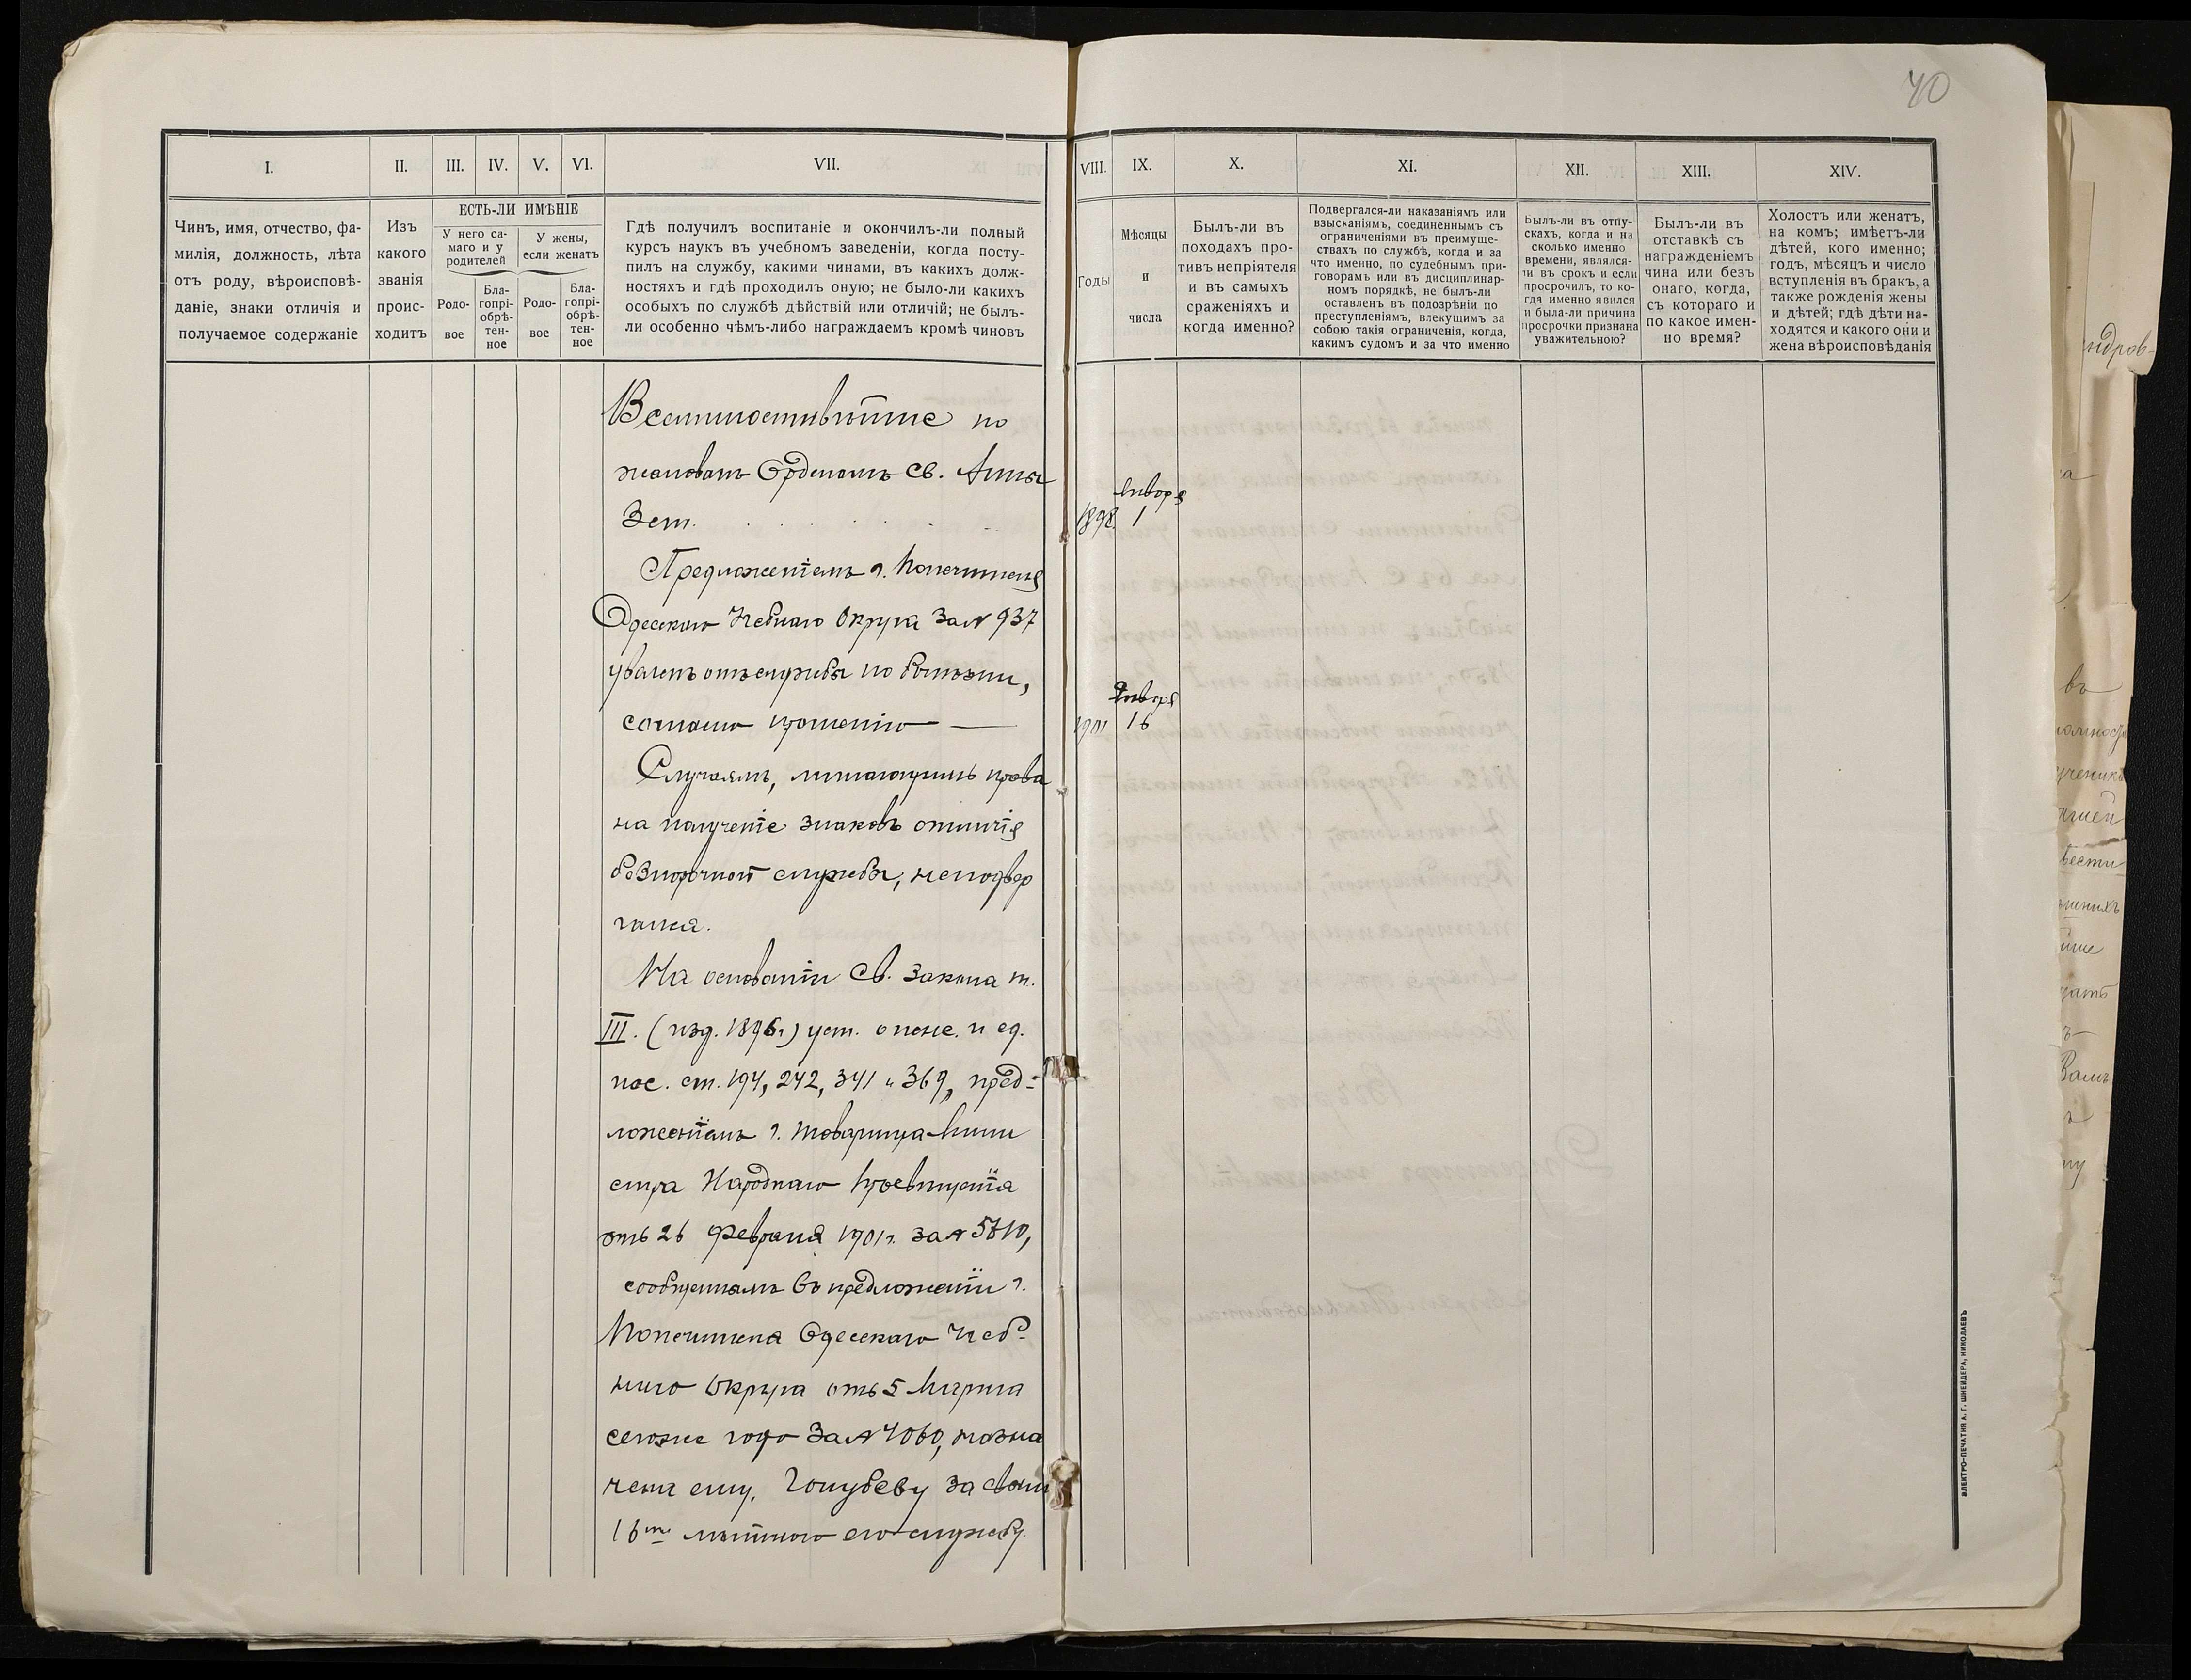 40
I.
II.
III.
IV.
V.
VI.
VII.
VIII.
IX.
X.
XI.
XII.
XIII.
XIV.
Чинъ, имя, отчество, фа-
милія, должность, лѣта
отъ роду, вѣроисповѣ-
даніе, знаки отличія и
получаемое содержаніе
Изъ
какого
званія
проис-
ходитъ
ЕСТЬ-ЛИ ИМѢНІЕ
У него са-
маго и у
родителей
У жены,
если женатъ
Родо-
вое
Бла-
гопрі-
обрѣ-
тен-
ное
Родо-
вое
Бла-
гопрі-
обрѣ-
тен-
ное
Гдѣ получилъ воспитаніе и окончилъ-ли полный
курсъ наукъ въ учебномъ заведеніи, когда посту-
пилъ на службу, какими чинами, въ какихъ долж-
ностяхъ и гдѣ проходилъ оную; не было-ли какихъ
особыхъ по службѣ дѣйствій или отличій; не былъ-
ли особенно чѣмъ-либо награждаемъ кромѣ чиновъ
Годы
Мѣсяцы
и
числа
Былъ-ли въ
походахъ про-
тивъ непріятеля
и въ самыхъ
сраженіяхъ и
когда именно?
Подвергался-ли наказаніямъ или
взысканіямъ, соединеннымъ съ
ограниченіями въ преимуще-
ствахъ по службѣ, когда и за
что именно, по судебнымъ при-
говорамъ или въ дисциплинар-
номъ порядкѣ, не былъ-ли
оставленъ въ подозрѣніи по
преступленіямъ, влекущимъ за
собою такія ограниченія, когда,
какимъ судомъ и за что именно
Былъ-ли въ отпу-
скахъ, когда и на
сколько именно
времени, являлся-
ли въ срокъ и если
просрочилъ, то ко-
гда именно явился
и была-ли причина
просрочки признана
уважительною?
Былъ-ли въ
отставкѣ съ
награжденіемъ
чина или безъ
онаго, когда,
съ котораго и
по какое имен-
но время?
Холостъ или женатъ,
на комъ; имѣетъ-ли
дѣтей, кого именно;
годъ, мѣсяцъ и число
вступленія въ бракъ, а
также рожденія жены
и дѣтей; гдѣ дѣти на-
ходятся и какого они и
жена вѣроисповѣданія
Всемилостивѣйше по
жалованъ Орденомъ Св. Анны
3 ст.
1898 Января 1
Предложеніемъ г. Попечителя
Одесскаго Учебнаго Округа за № 937
уволенъ отъ службы по болѣзни,
согласно прошенію
1901 Января 16
Случаямъ, лишающимъ права
на полученіе знаковъ отличія
безпорочной службы, не подвер
гался.
На основаніи Св. Закона т.
III. (изд. 1896 г.) уст. о пенс. и ед.
пос. ст. 194, 242, 341 и 369, пред-
ложеніемъ г. Товарища Мини
стра Народнаго Просвѣщенія
отъ 26 Февраля 1901 г. за № 5710,
сообщеннымъ въ предложеніи г.
Попечителя Одесскаго Учеб-
наго Округа отъ 5 Марта
сего же года за № 4060, назна
чена ему, Голубеву за свыш
16ти лѣтнюю его службу.
ЭЛЕКТРО-ПЕЧАТНЯ А. Г. ШНЕЙДЕРА, НИКОЛАЕВЪ
ндров-
въ
ученика
вести
Вамъ